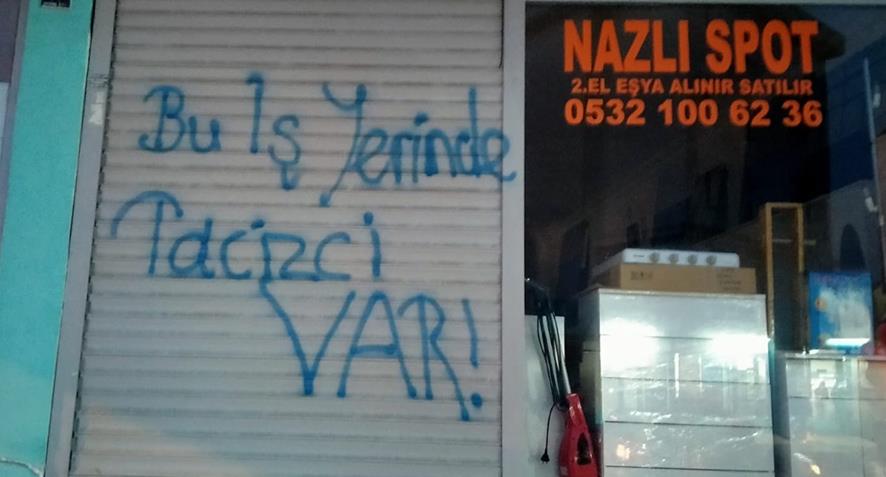 Bu İş Yerinde
Tacizci
VAR!
NAZLI SPOT
2.EL EŞYA ALINIR SATILIR
0532 100 62 36